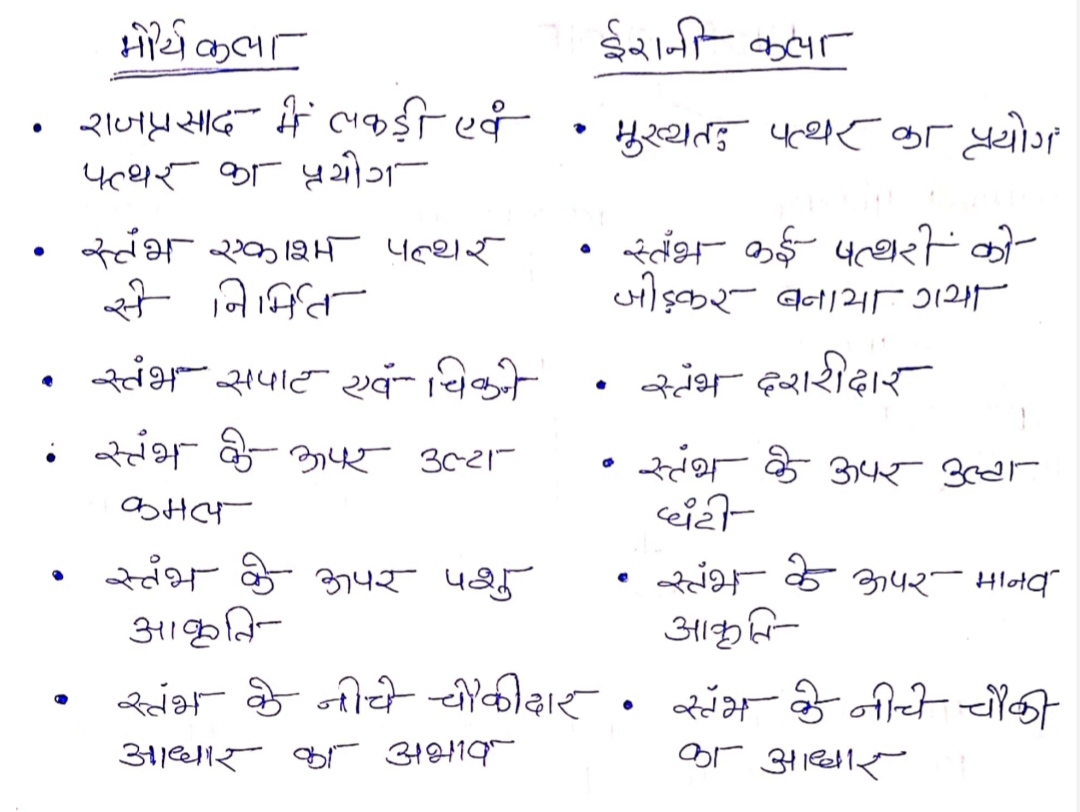 मौर्य कला
राजप्रसाद में लकड़ी एवं
पत्थर का प्रयोग
स्तंभ एकाश्म पत्थर
से निर्मित
स्तंभ सपाट एवं चिकने
स्तंभ के ऊपर उल्टा
कमल
स्तंभ के ऊपर पशु
आकृति
स्तंभ के नीचे चौकीदार
आधार का अभाव
ईरानी कला
मुख्यतः पत्थर का प्रयोग
स्तंभ कई पत्थरों को
जोड़कर बनाया गया
स्तंभ दरारीदार
स्तंभ के ऊपर उल्टा
घंटी
स्तंभ के ऊपर मानव
आकृति
स्तंभ के नीचे चौकी
का आधार